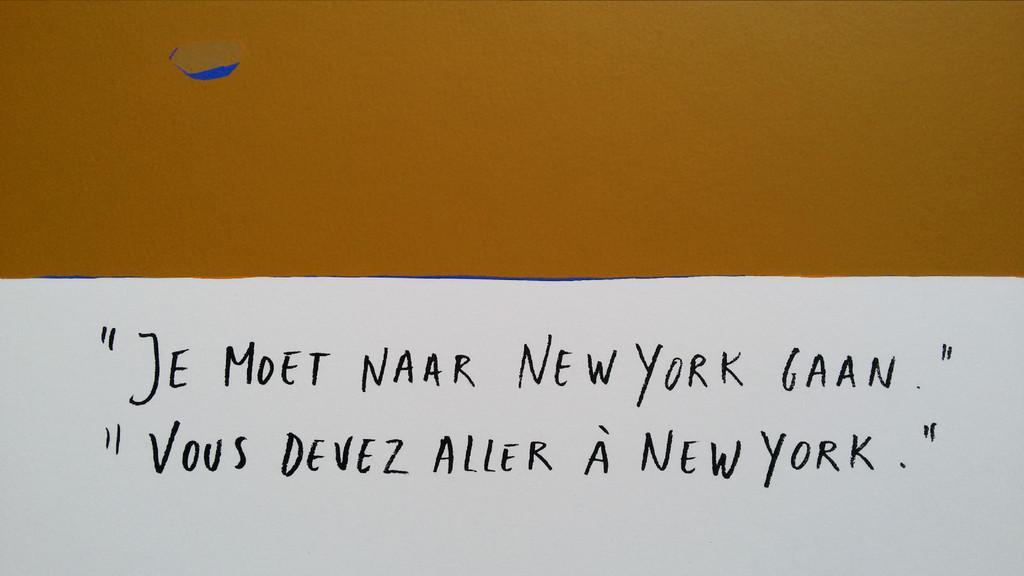 "JE MOET NAAR NEW YORK GAAN."
"VOUS DEVEZ ALLER À NEW YORK."